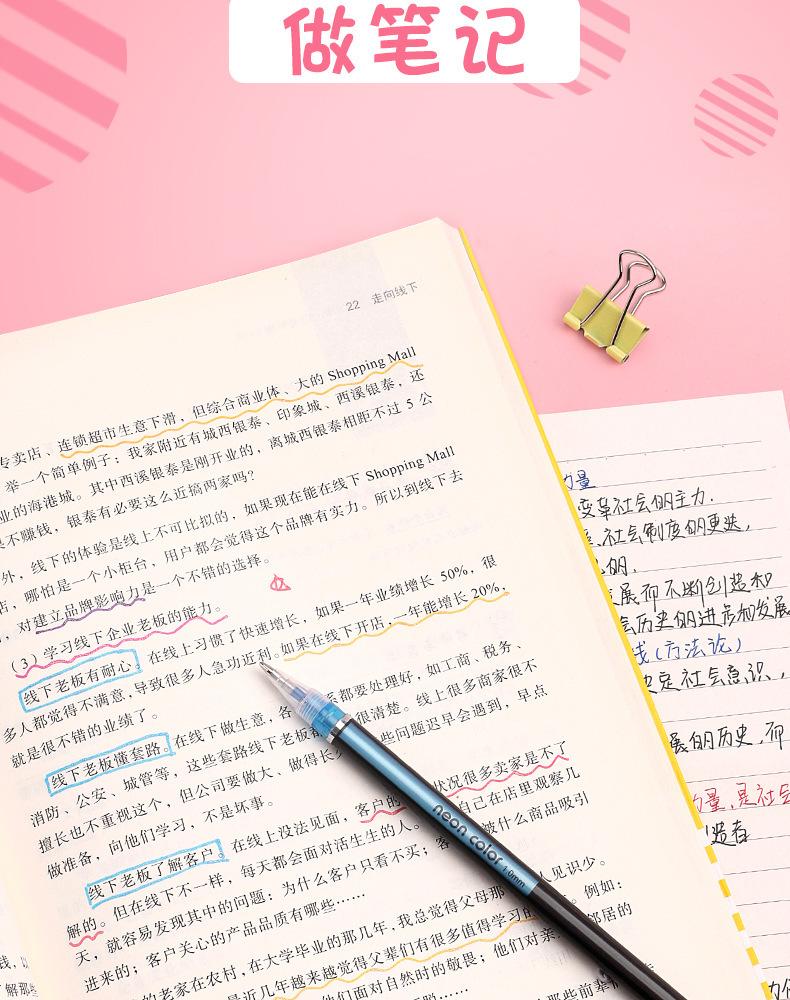 做笔记
22 走向线下
专卖店、连锁超市生意下滑,但综合商业体、大的 Shopping Mall
举一个简单例子:我家附近有城西银泰、印象城、西溪银泰,还
业的海港城。其中西溪银泰是刚开业的,离城西银泰相距不过 5 公
不赚钱,银泰有必要这么近搞两家吗?
外,线下的体验是线上不可比拟的,如果现在能在线下 Shopping Mall
店,哪怕是一个小柜台,用户都会觉得这个品牌有实力。所以到线下去
,对建立品牌影响力是一个不错的选择。
(3)学习线下企业老板的能力。
线下老板有耐心。在线上习惯了快速增长,如果一年业绩增长 50%,很
多人都觉得不满意,导致很多人急功近利。如果在线下开店,一年能增长 20%,
就是很不错的业绩了。
线下老板懂套路。在线下做生意,各 系都要处理好,如工商、税务、
消防、公安、城管等,这些套路线下老板都 很清楚。线上很多商家很不
擅长也不重视这个,但公司要做大、做得长 些问题迟早会遇到,早点
做准备,向他们学习,不是坏事。
线下老板了解客户。在线上没法见面,客户的 状况很多卖家是不了
解的。但在线下不一样,每天都会面对活生生的人。 自己在店里观察几
天,就容易发现其中的问题:为什么客户只看不买;客 被什么商品吸引
进来的;客户关心的产品品质有哪些……
的老家在农村,在大学毕业的那几年,我总觉得父母那 人见识少。
是近几年越来越觉得父辈们有很多值得学习的 。例如:
他们面对自然时的敬畏;他们对亲 邻居的
那些前辈
neon color 1.0mm
力量
变革社会的主力.
社会制度的更迭,
的.
展而不断创造和
会历史的进步和发展
线(方法论)
决定社会意识,
展的历史,而
力量,是社会
造者